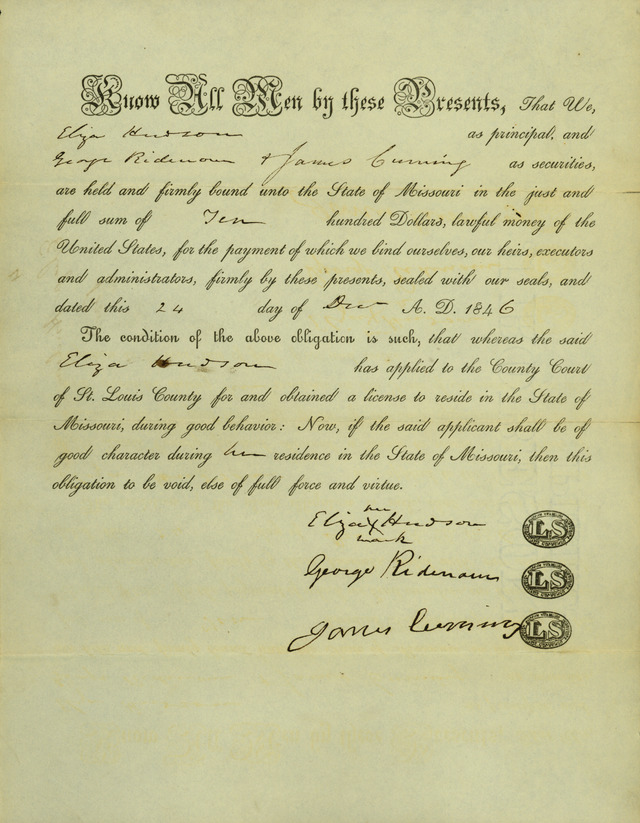 Know All Men by these Presents, That We,
Eliza Hudson as principal, and
George Ridenour & James Cuming as securities,
are held and firmly bound unto the State of Missouri in the just and
full sum of Ten hundred Dollars, lawful money of the
United States, for the payment of which we bind ourselves, our heirs, executors
and administrators, firmly by these presents, sealed with our seals, and
dated this 24 day of Dec A. D. 1846
The condition of the above obligation is such, that whereas the said
Eliza Hudson has applied to the County Court
of St. Louis County for and obtained a license to reside in the State of
Missouri, during good behavior: Now, if the said applicant shall be of
good character during her residence in the State of Missouri, then this
obligation to be void, else of full force and virtue.
her
Eliza X Hudson LS
mark
George Ridenour LS
James Cuming LS